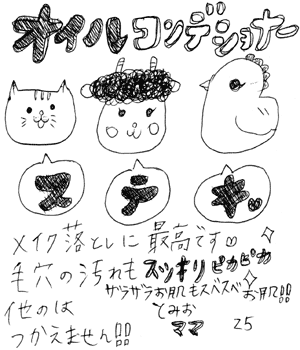 オイルコンデショナー
ステキッ
メイク落としに最高です♡
毛穴の汚れもスッキリピカピカ
ザラザラお肌もスベスベお肌!!
他のは
つかえません!!
とみお
ママ 25